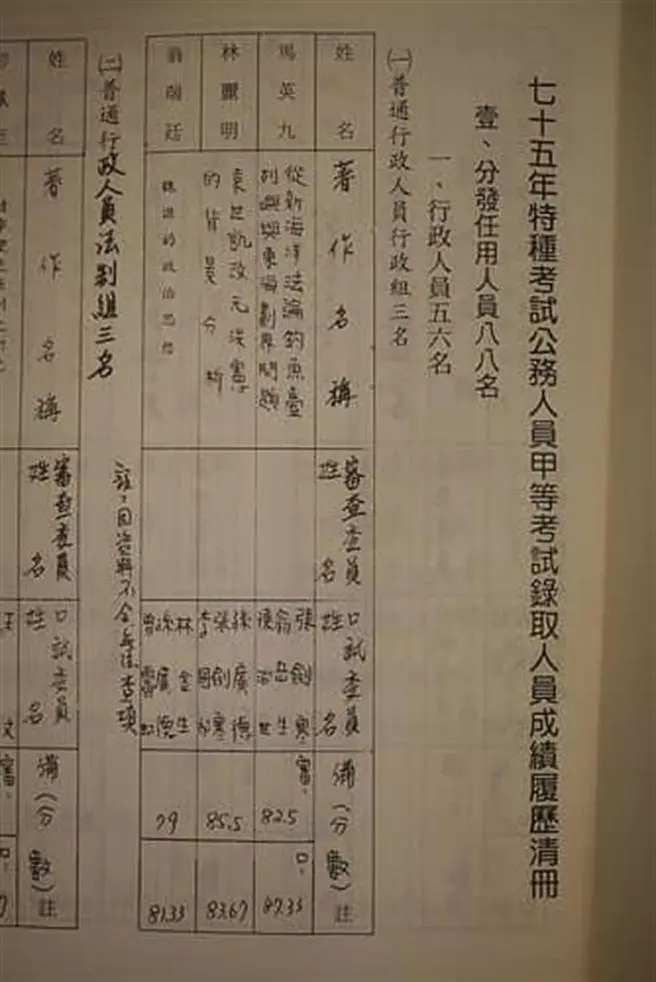 七十五年特種考試公務人員甲等考試錄取人員成績履歷清冊
壹、分發任用人員八八名
一、行政人員五六名
㈠普通行政人員行政組三名
姓名
著作名稱
審查委員
姓名
口試委員
姓名
備(分數)註
馬英九
從新海洋法論釣魚臺
列嶼與東海劃界問題
張劍寒
翁岳生
陳治世
審:82.5
口:87.33
林麗明
袁世凱改元洪憲
的背景分析
張劍寒
85.5
83.67
的政治思想
林金生
79
81.33
註:因資料不全無法查填
㈡普通行政人員法制組三名
姓名
著作名稱
審查委員
姓名
口試委員
姓名
備(分數)註